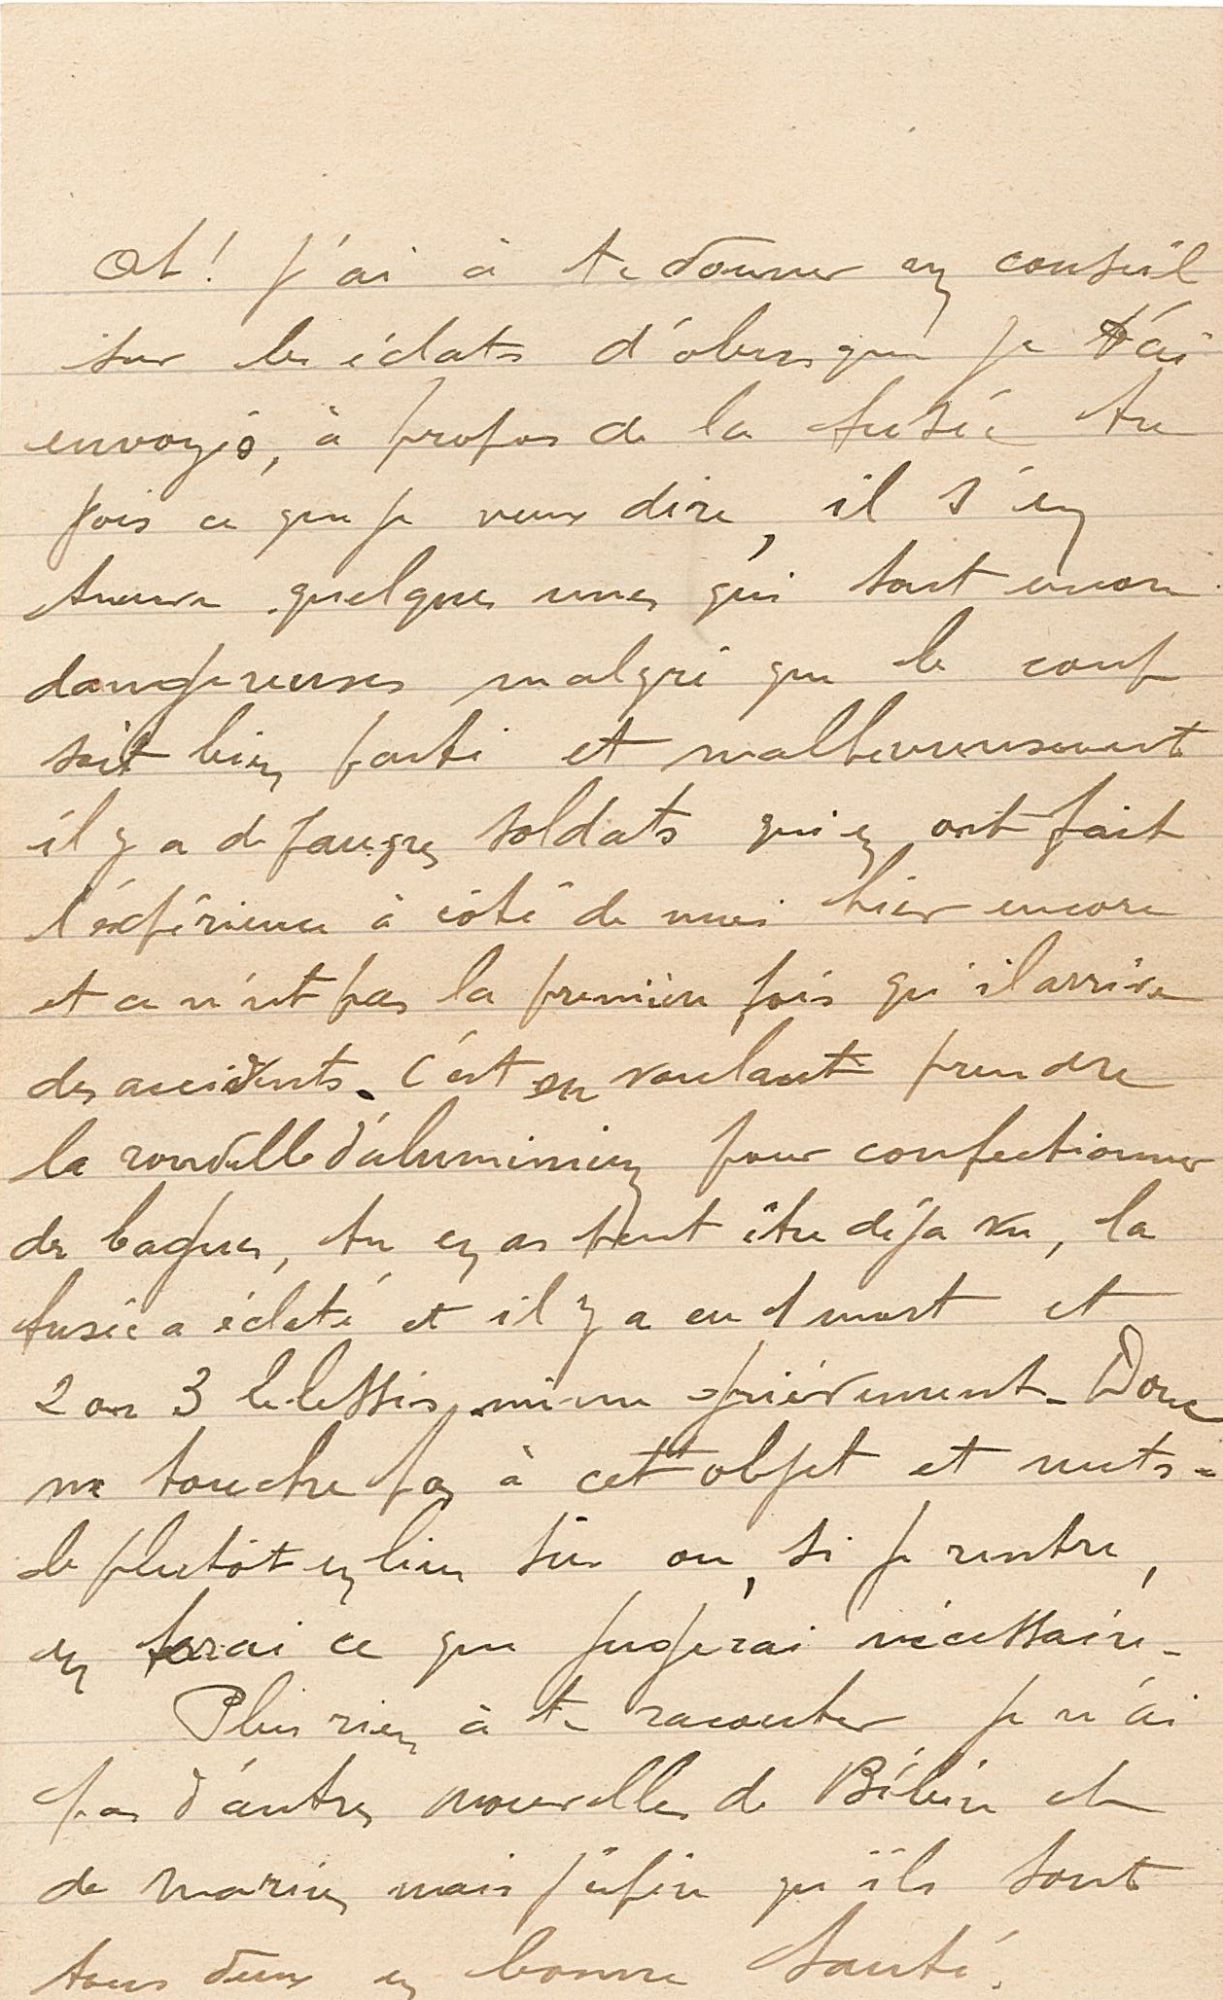 Ah! j'ai à te donner un conseil
sur les éclats d'obus que je t'ai
envoyés, à propos de la fusée tu
vois ce que je veux dire, il s'en
trouve quelques unes qui sont encore
dangereuses malgré que le coup
soit bien parti et malheureusement
il y a de pauvres soldats qui en ont fait
l'expérience à côté de moi hier encore
et ce n'est pas la première fois qu'il arrive
des accidents. C'est en voulant prendre
la rondelle d'aluminium pour confectionner
des bagues, tu en as peut être déja vu, la
fusée a éclaté et il y a eu 1 mort et
2 ou 3 blessés même grièvement. Donc
ne touche pas à cet objet et mets-
le plutôt en lieu sûr ou, si je rentre,
en ferai ce que jugerai nécessaire.
Plus rien à te raconter je n'ai
pas d'autres nouvelles de Bébin et
de Marius mais j'éspère qu'ils sont
tous deux en bonne santé.